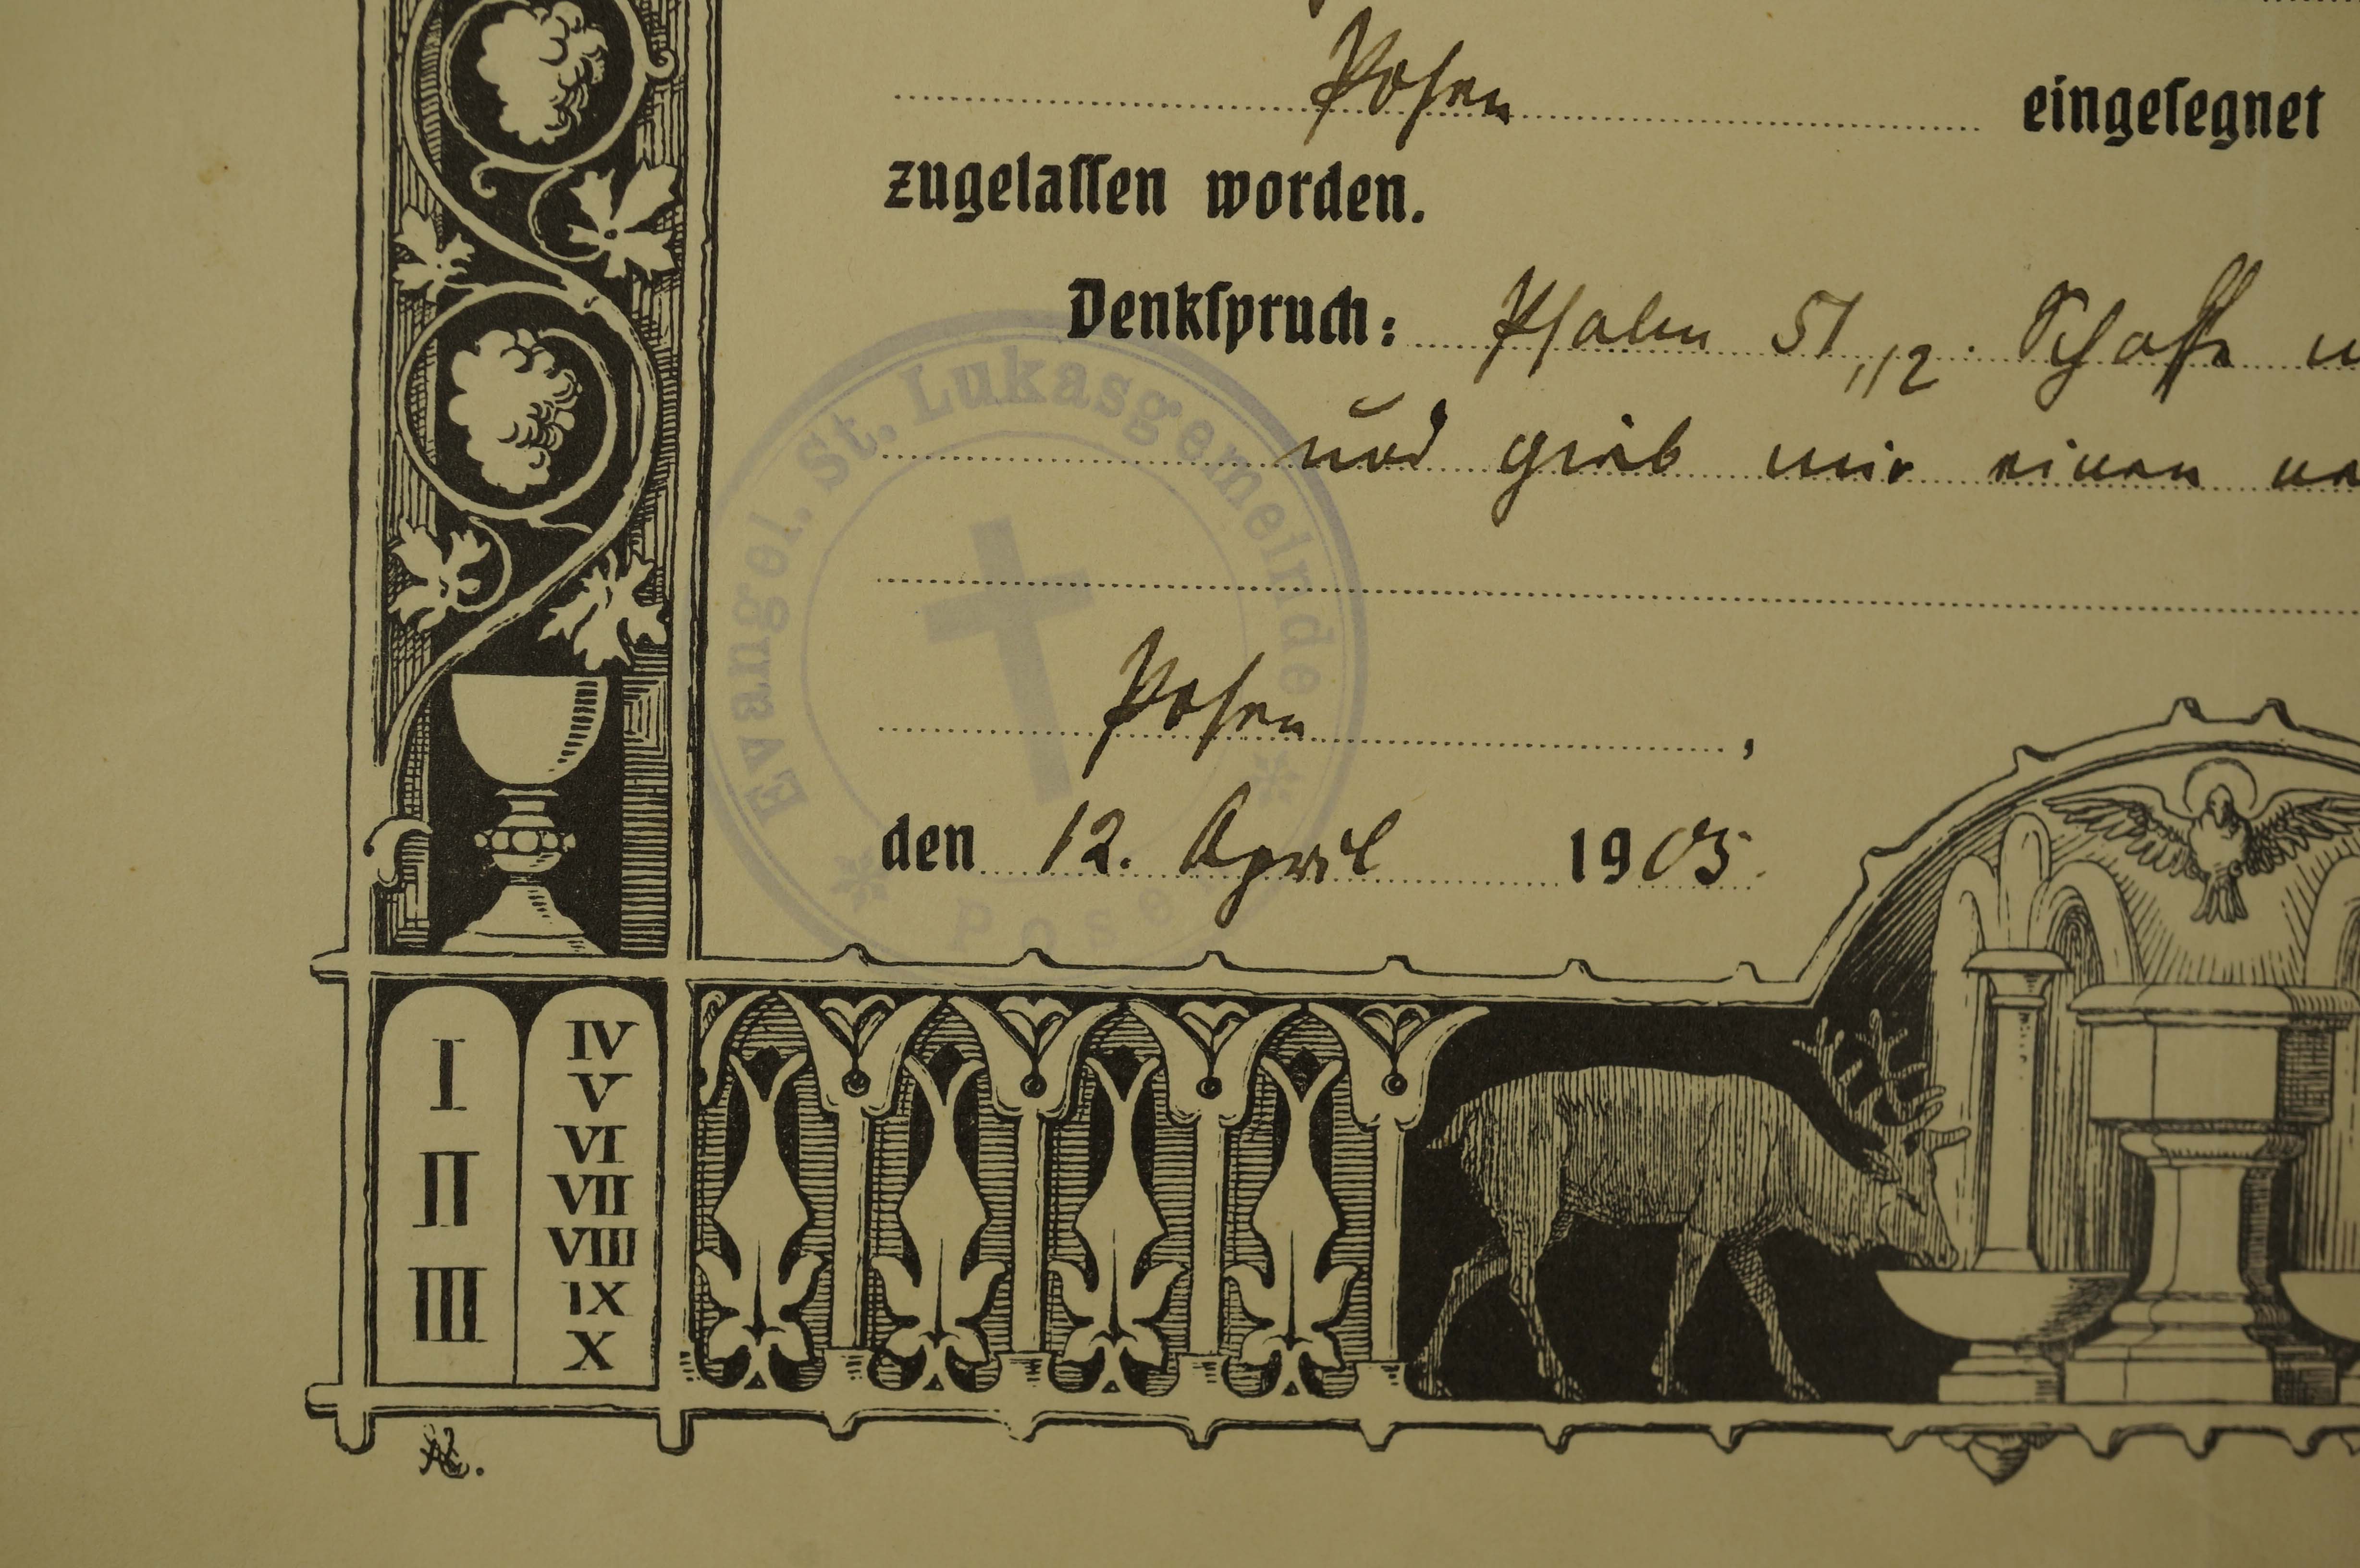 Posen eingesegnet
zugelassen worden.
Denkspruch: Psalm 51,12. Schaffe
und gieb mir einen
Evangel. St. Lukasgemeinde
Posen
Posen,
den 12. April 1905.
I
II
III
IV
V
VI
VII
VIII
IX
X